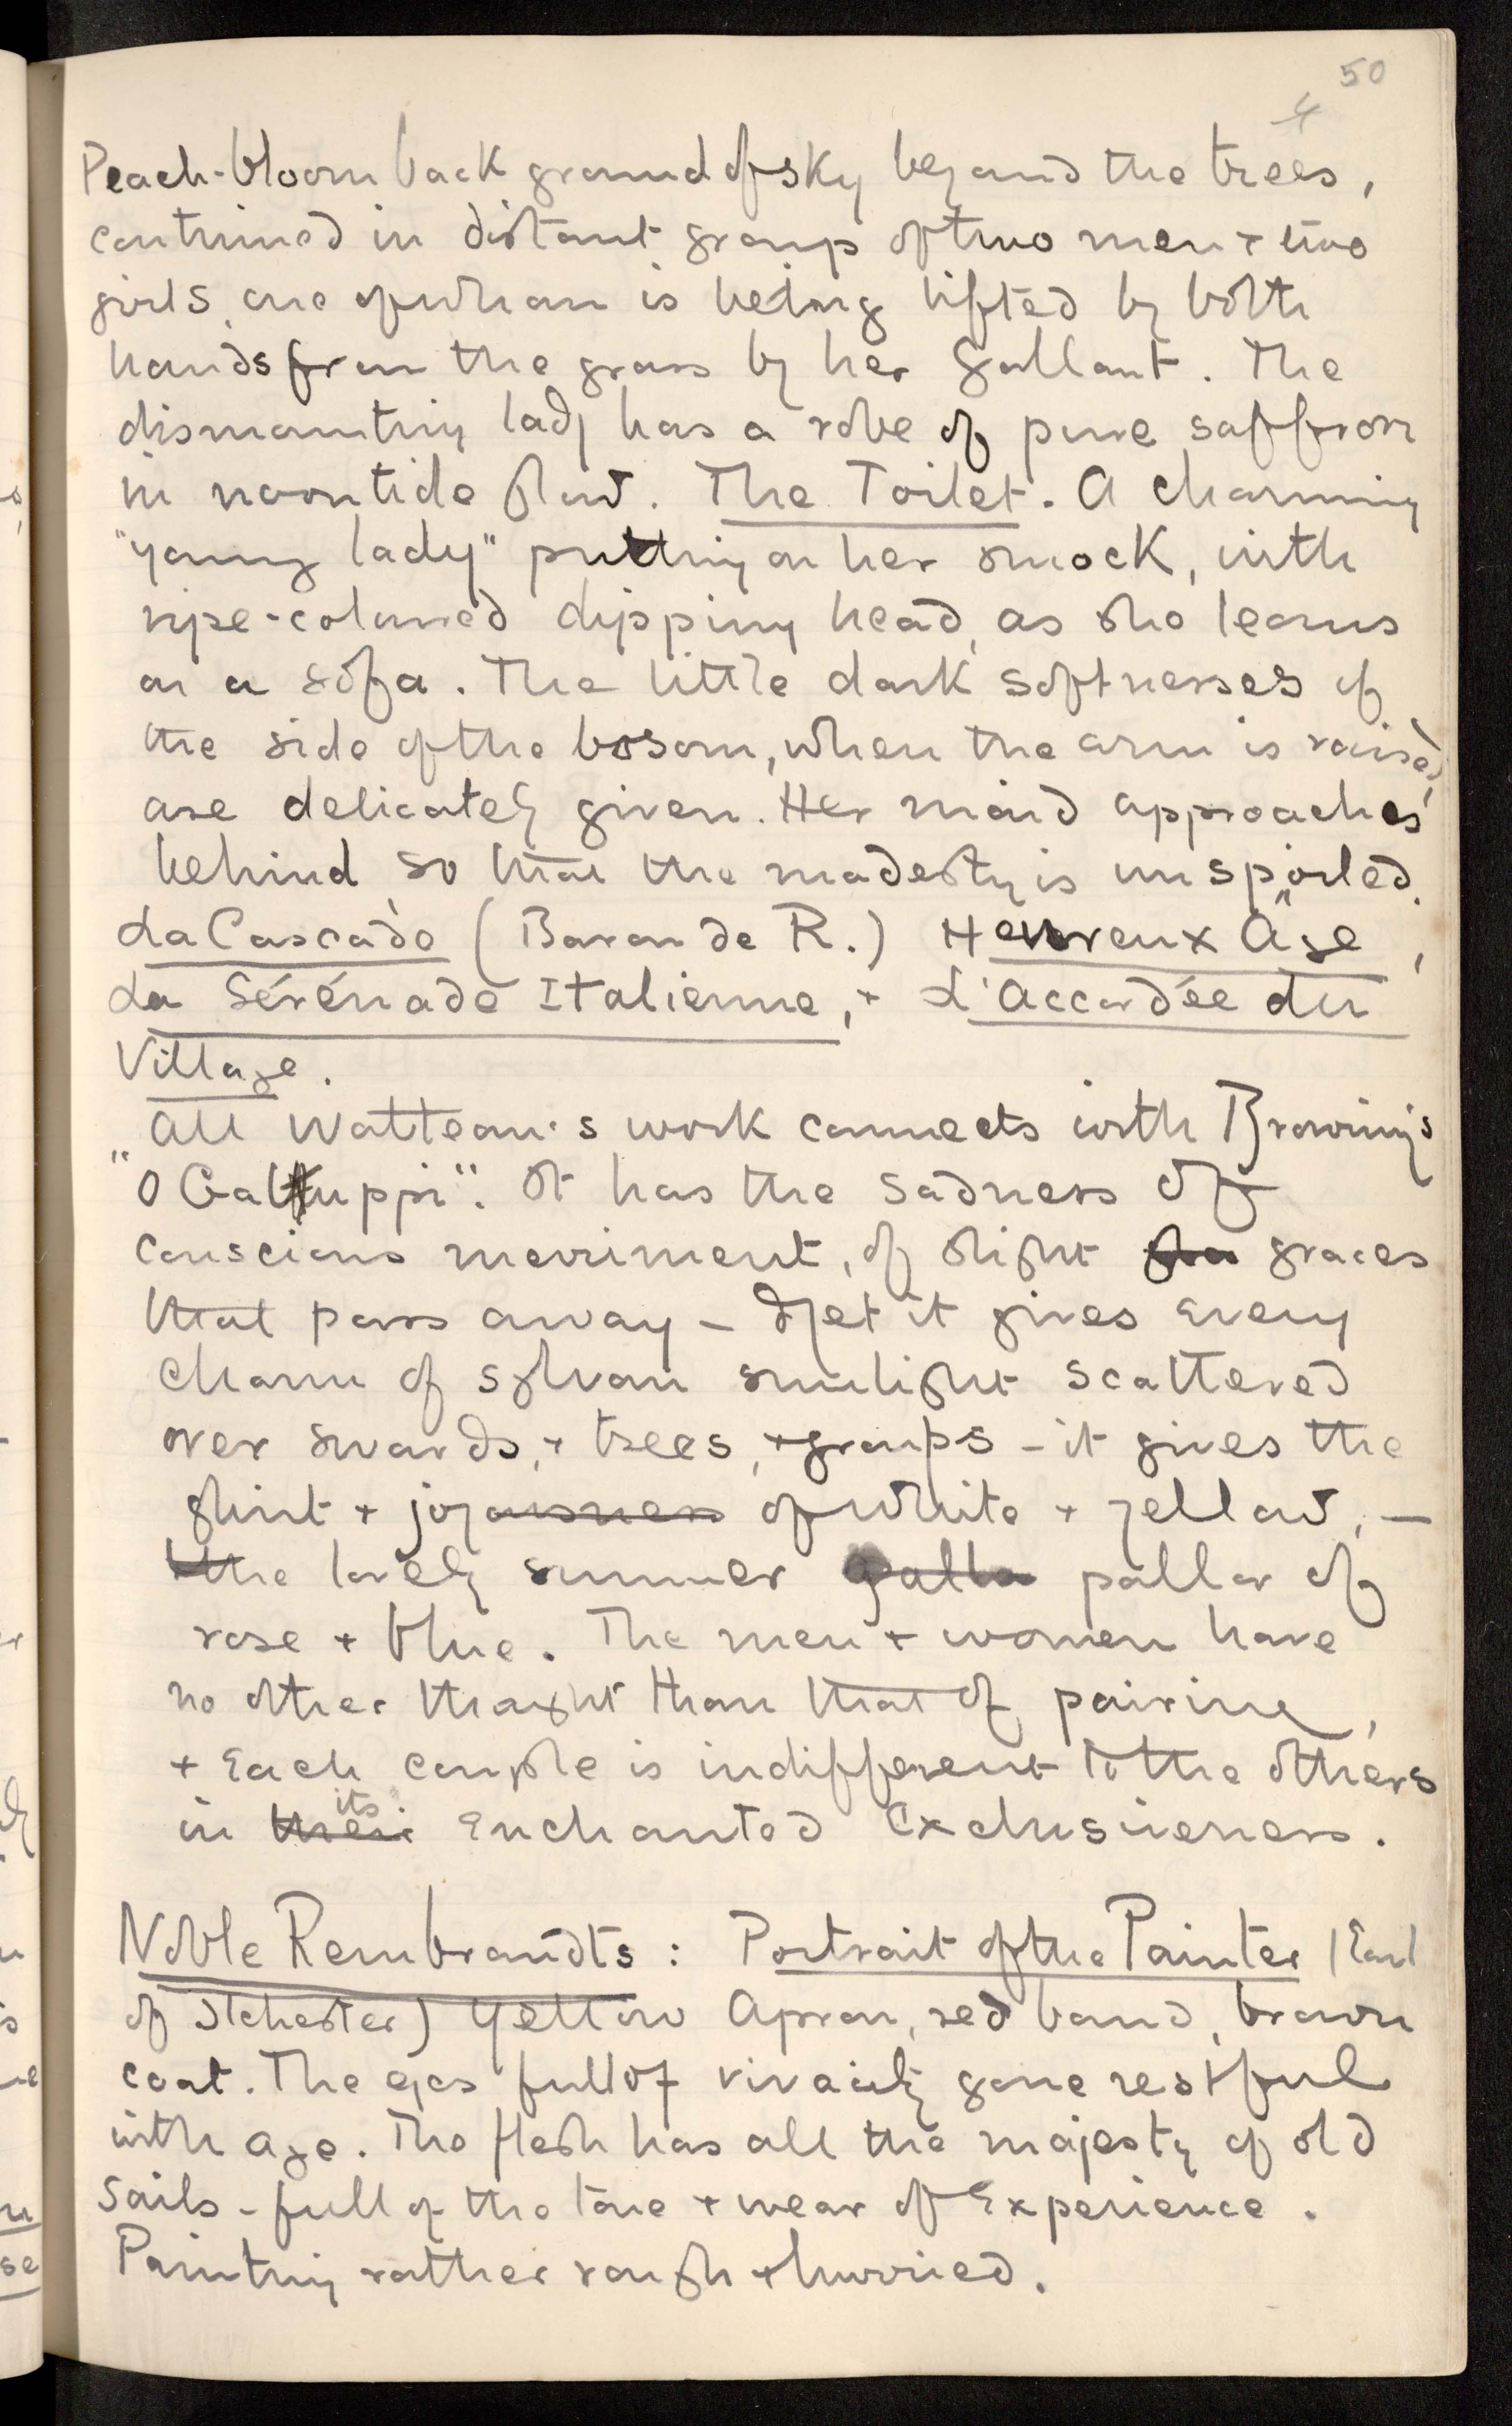 50
4
Peach-bloom back ground of sky beyond the trees,
continued in distant group of two men + two
girls, one of whom is being lifted by both
hands from the grass by her gallant. The
dismounting lady has a robe of pure saffron
in noontide glow. The Toilet. A charming
"young lady" putting on her smock, with
ripe-coloured dipping head, as she leans
on a sofa. The little dark softnesses of
the side of the bosom, when the arm is raised,
are delicately given. Her maid approaches
behind so that the modesty is unspoiled.
La Cascade (Baron de R.) Heureux Age,
La Sérénade Italienne, + L'Accordée du
Village.
All Watteau's work connects with Browning's
"O Galuppi". It has the sadness of
conscious merriment, of slight gra graces
that pass away – & yet it gives every
charm of sylvan sunlight scattered
over swards, + trees, + groups – it gives the
glint + joyousness of white + yellow, –
the lovely summer palla pallor of
rose + blue. The men + women have
no other thought than that of pairing,
+ each couple is indifferent to the others
in their its enchanted exclusiveness.
Noble Rembrandts: Portrait of the Painter (Earl
of Ilchester) Yellow apron, red band, brown
coat. The eyes full of vivacity gone restful
with age. The flesh has all the majesty of old
sails – full of the tone + wear of experience.
Painting rather rough + hurried.